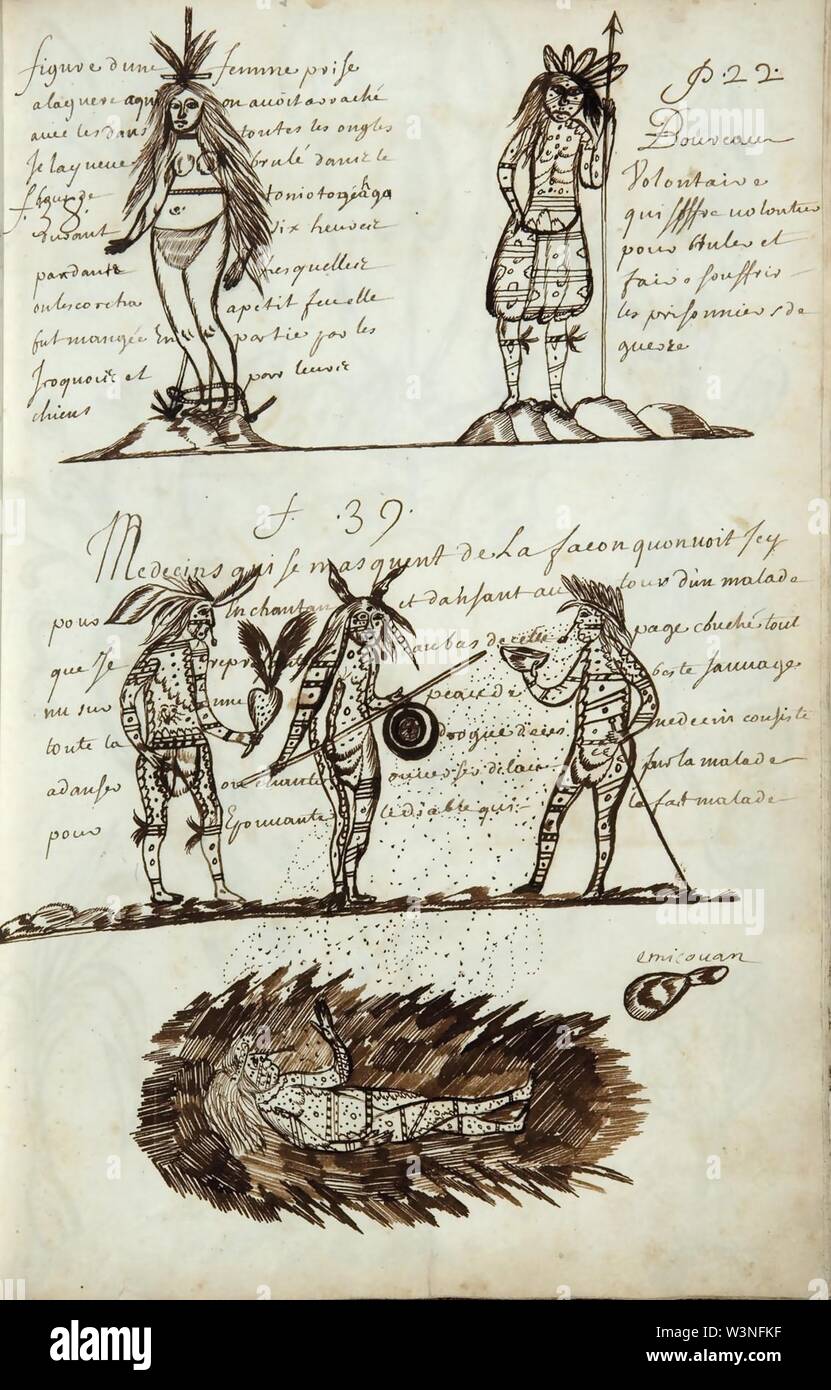 figure dune femme prise
alaguere aqui on avoit arraché
avec les dans toutes les ongles
Je lay veue brulé dans le
f. 38.
durant Six heures
pandant lesquelles
on lescorcha apetit feu elle
fut mangée En partie par les
Iroquois et par leurs
chiens
P. 22.
Boureau
Volontaire
qui soffre volontier
pour bruler et
faire souffrir
les prisonniers de
guerre
f. 39.
Medecins qui se masquent de La facon quon voit Jcy
pour Enchantan et dansant au tour d'un malade
que Je represente au bas de cette page couché tout
nu sur une peau de beste sauvage
toute la drogue de ces medecin consiste
a danser ou chanter sur la malade
pour Epouvante le diable qui le fait malade
emicouan
alamy
Image ID: W3NFKF
www.alamy.com